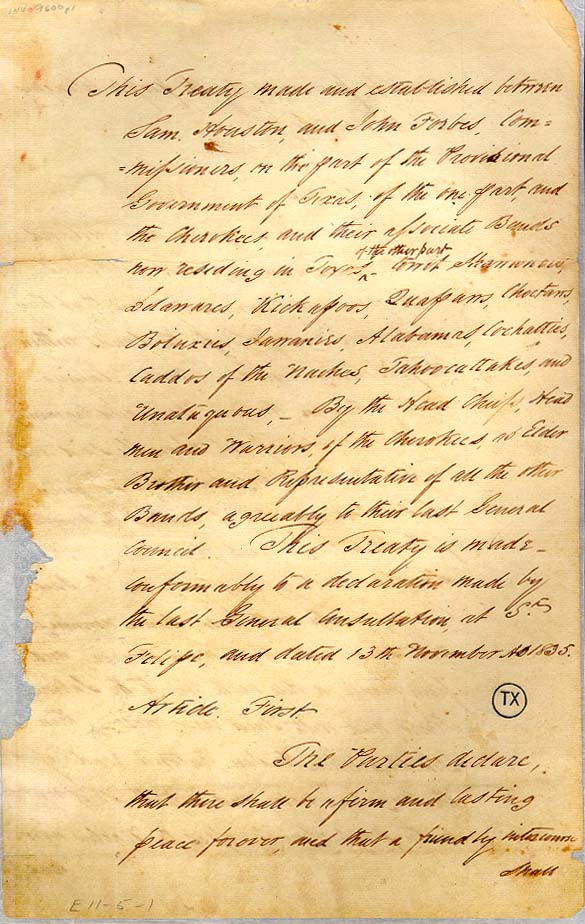 This Treaty made and established between
Sam. Houston, and John Forbes, Com=
=missioners, on the part of the Provisional
Government of Texas, of the one part, and
the Cherokees, and their associate Bands
of the other part
now residing in Texas, ^ towit Shawnees,
Delawares, Kickapoos, Quapaws, Choctaws,
Boluxies, Iawanies, Alabamas, Cochatties,
Caddos of the Naches, Tahoocattakes, and
Unataquous, — By the Head Chiefs, Head
men and Warriors, of the Cherokees, as Elder
Brother and Representative of all the other
Bands, agreeably to their last General
Council. This Treaty is made
conformably to a declaration made by
the last General Consultation, at St
Felipe, and dated 13th November AD 1835.
Article. First
TX
The Parties declare,
that there shall be a firm and lasting
peace forever, and that a friendly intercourse
shall
E11-5-1